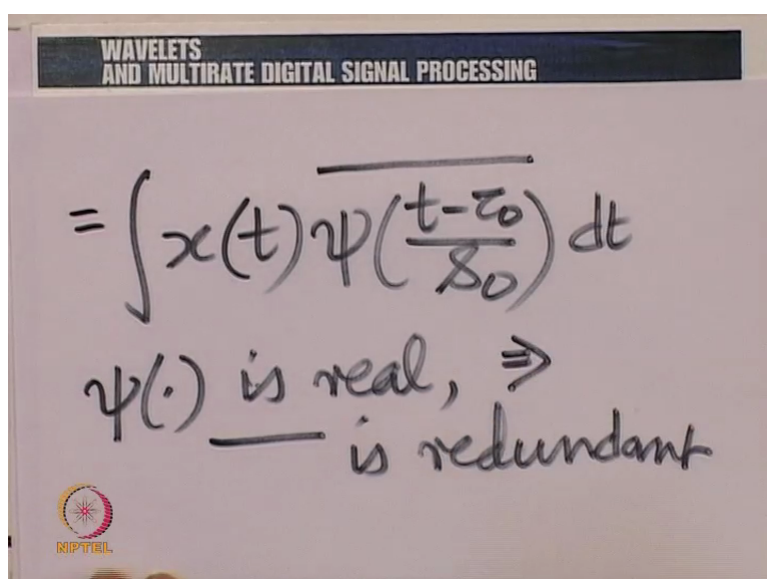 WAVELETS
AND MULTIRATE DIGITAL SIGNAL PROCESSING
= ∫ x(t) \overline{ψ((t-τ₀)/s₀)} dt
ψ(·) is real, ⇒
___ is redundant
NPTEL